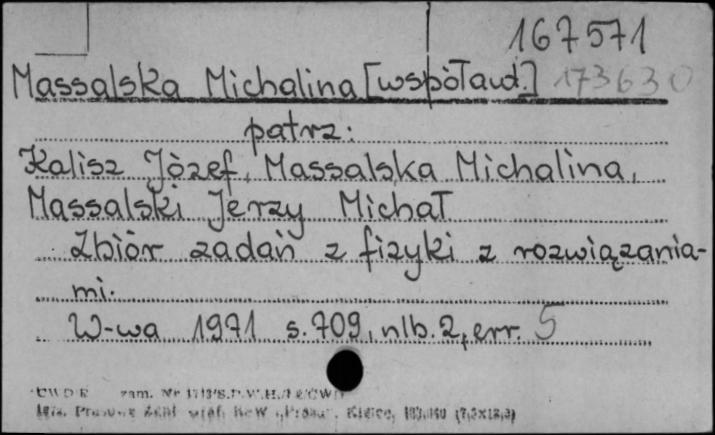 167571
Massalska Michalina [współaut.] 173630
patrz:
Kalisz Józef, Massalska Michalina,
Massalski Jerzy Michał
Zbiór zadań z fizyki z rozwiązania-
mi.
W-wa 1971 s. 709, nlb. 2, err. 5
CWD R zam. Nr
Kielce,